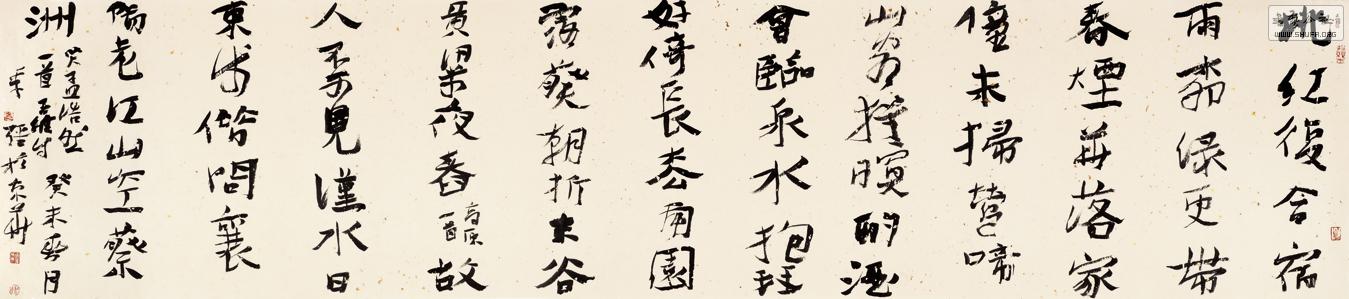 桃紅復含宿
雨柳绿更带
春煙華落家
僮未掃鶯啼
山客猶瞑酌酒
會臨泉水抱琴
好倚長松南園
露葵朝折東谷
黄粱夜舂 一首 故
人不可見漢水日
東流借問襄
陽老江山空蔡
洲 哭孟浩然
一首 王維 癸未 月
於京華
WWW.SHUFA.ORG